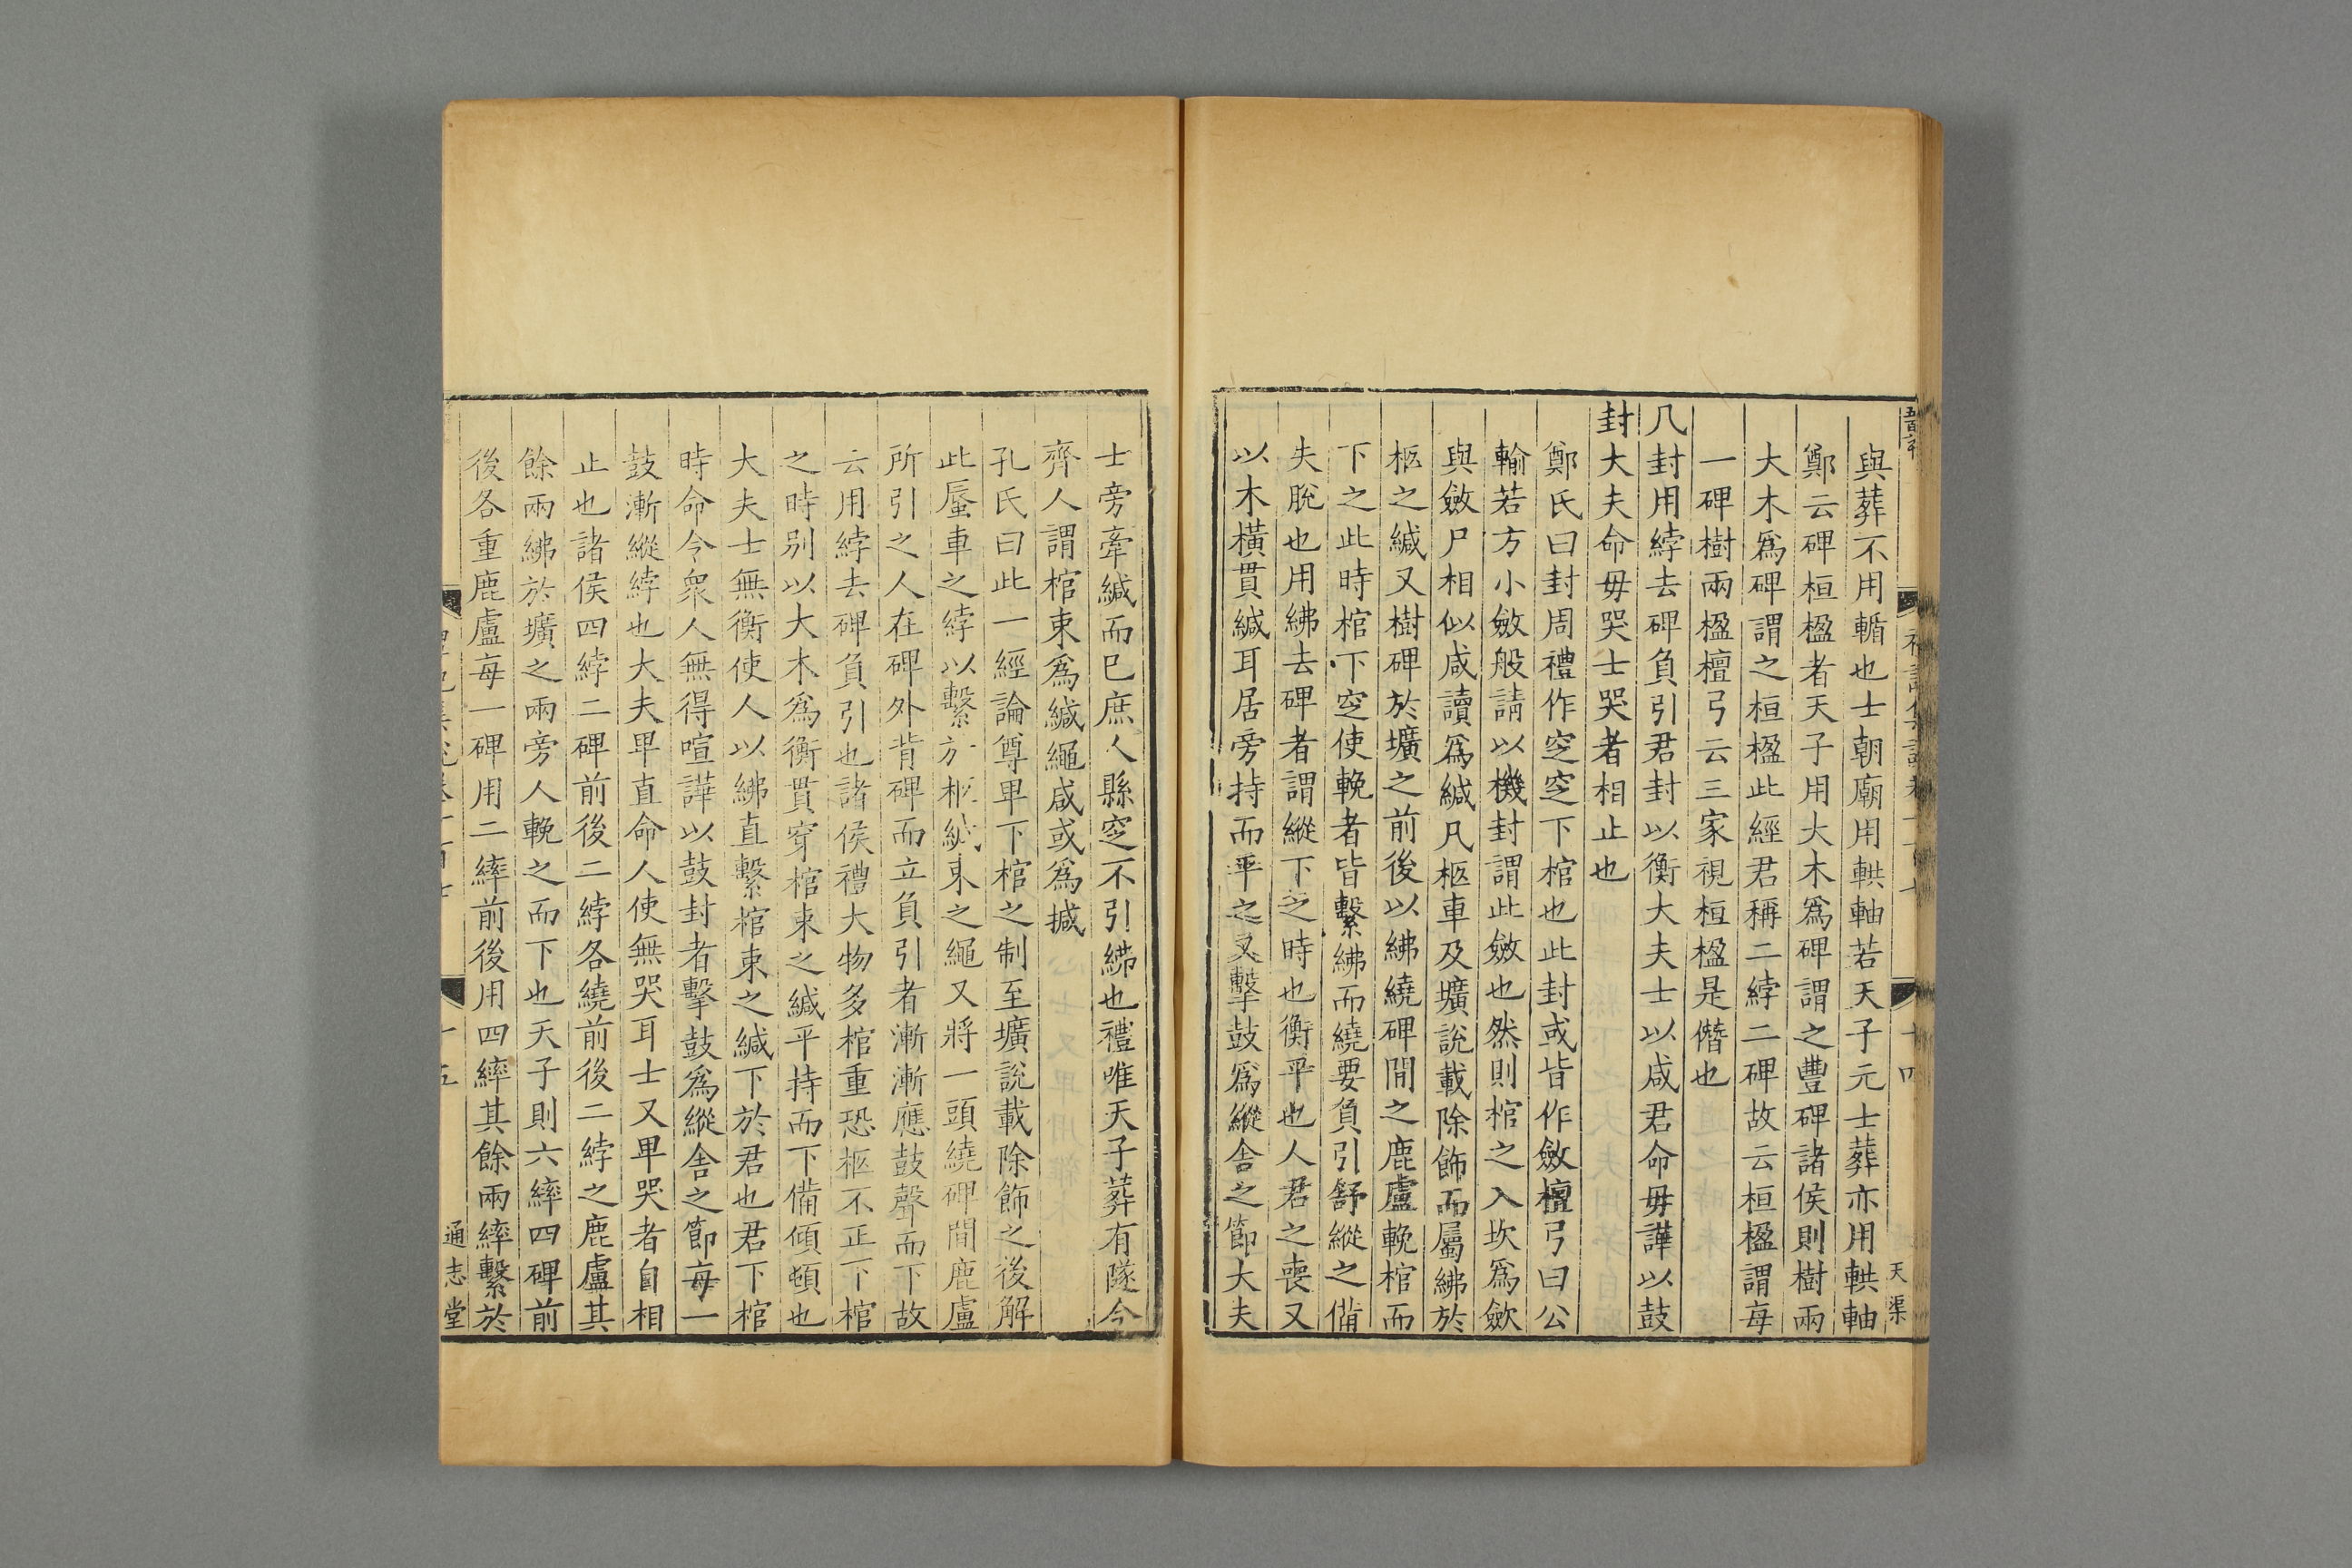 與葬不用輴也士朝廟用輁軸若天子元士葬亦用輁軸
鄭云碑桓楹者天子用大木爲碑謂之豐碑諸侯則樹兩
大木爲碑謂之桓楹此經君稱二綍二碑故云桓楹謂每
一碑樹兩楹檀弓云三家視桓楹是僭也
凡封用綍去碑負引君封以衡大夫士以咸君命毋譁以鼓
封大夫命毋哭士哭者相止也
鄭氏曰封周禮作窆窆下棺也此封或皆作斂檀弓曰公
輸若方小斂般請以機封謂此斂也然則棺之入坎爲斂
與斂尸相似咸讀爲緘凡柩車及壙說載除飾而屬紼於
柩之緘又樹碑於壙之前後以紼繞碑閒之鹿盧輓棺而
下之此時棺下窆使輓者皆繫紼而繞要負引舒縱之備
失脫也用紼去碑者謂縱下之時也衡平也人君之喪又
以木橫貫緘耳居旁持而平之又擊鼓爲縱舍之節大夫
士旁牽緘而已庶人縣窆不引紼也禮唯天子葬有隧今
齊人謂棺束爲緘繩咸或爲椷
孔氏曰此一經論尊卑下棺之制至壙說載除飾之後解
此蜃車之綍以繫於柩緘束之繩又將一頭繞碑間鹿盧
所引之人在碑外背碑而立負引者漸漸應鼓聲而下故
云用綍去碑負引也諸侯禮大物多棺重恐柩不正下棺
之時別以大木爲衡貫穿棺束之緘平持而下備傾頓也
大夫士無衡使人以紼直繫棺束之緘下於君也君下棺
時命令衆人無得喧譁以鼓封者擊鼓爲縱舍之節每一
鼓漸縱綍也大夫卑直命人使無哭耳士又卑哭者自相
止也諸侯四綍二碑前後二綍各繞前後二綍之鹿盧其
餘兩紼於壙之兩旁人輓之而下也天子則六繂四碑前
後各重鹿盧每一碑用二繂前後用四繂其餘兩繂繫於
十五
通志堂